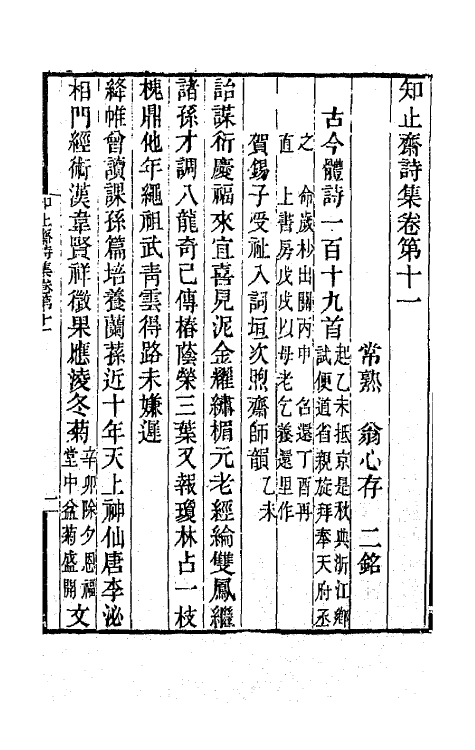 知止齋詩集卷第十一
常熟　翁心存　二銘
古今體詩一百十九首起乙未抵京是秋典浙江鄉
試便道省親旋拜奉天府丞
之　命歲杪出關丙申　召還丁酉再
直　上書房戊戌以母老乞養還里作
賀錫子受祉入詞垣次煦齋師韻乙未
詒謀衍慶福來宜喜見泥金耀繡楣元老經綸雙鳳繼
諸孫才調八龍奇已傳椿蔭榮三葉又報瓊林占一枝
槐鼎他年繩祖武青雲得路未嫌遲
絳帷曾讀課孫篇培養蘭蓀近十年天上神仙唐李泌
相門經術漢韋賢祥徵果應淩冬菊辛卯除夕恩福
堂中盆菊盛開文
知止齋詩集卷第十一
一